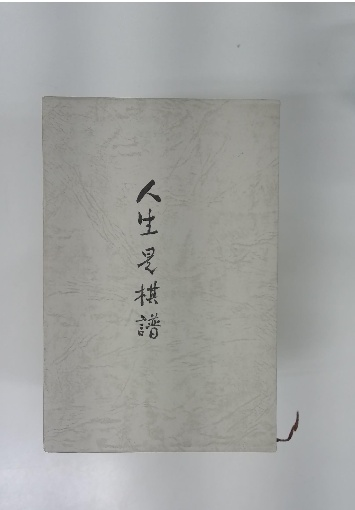 人生是棋譜